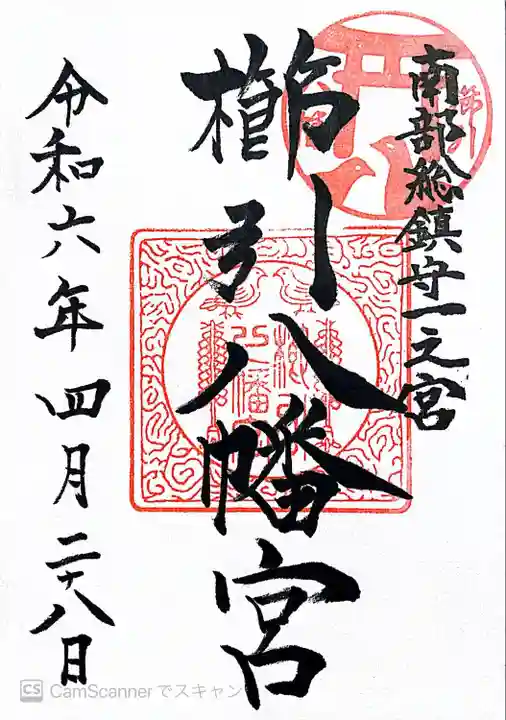 南部総鎮守一之宮
櫛引八幡宮
令和六年四月二十八日
CS CamScannerでスキャン